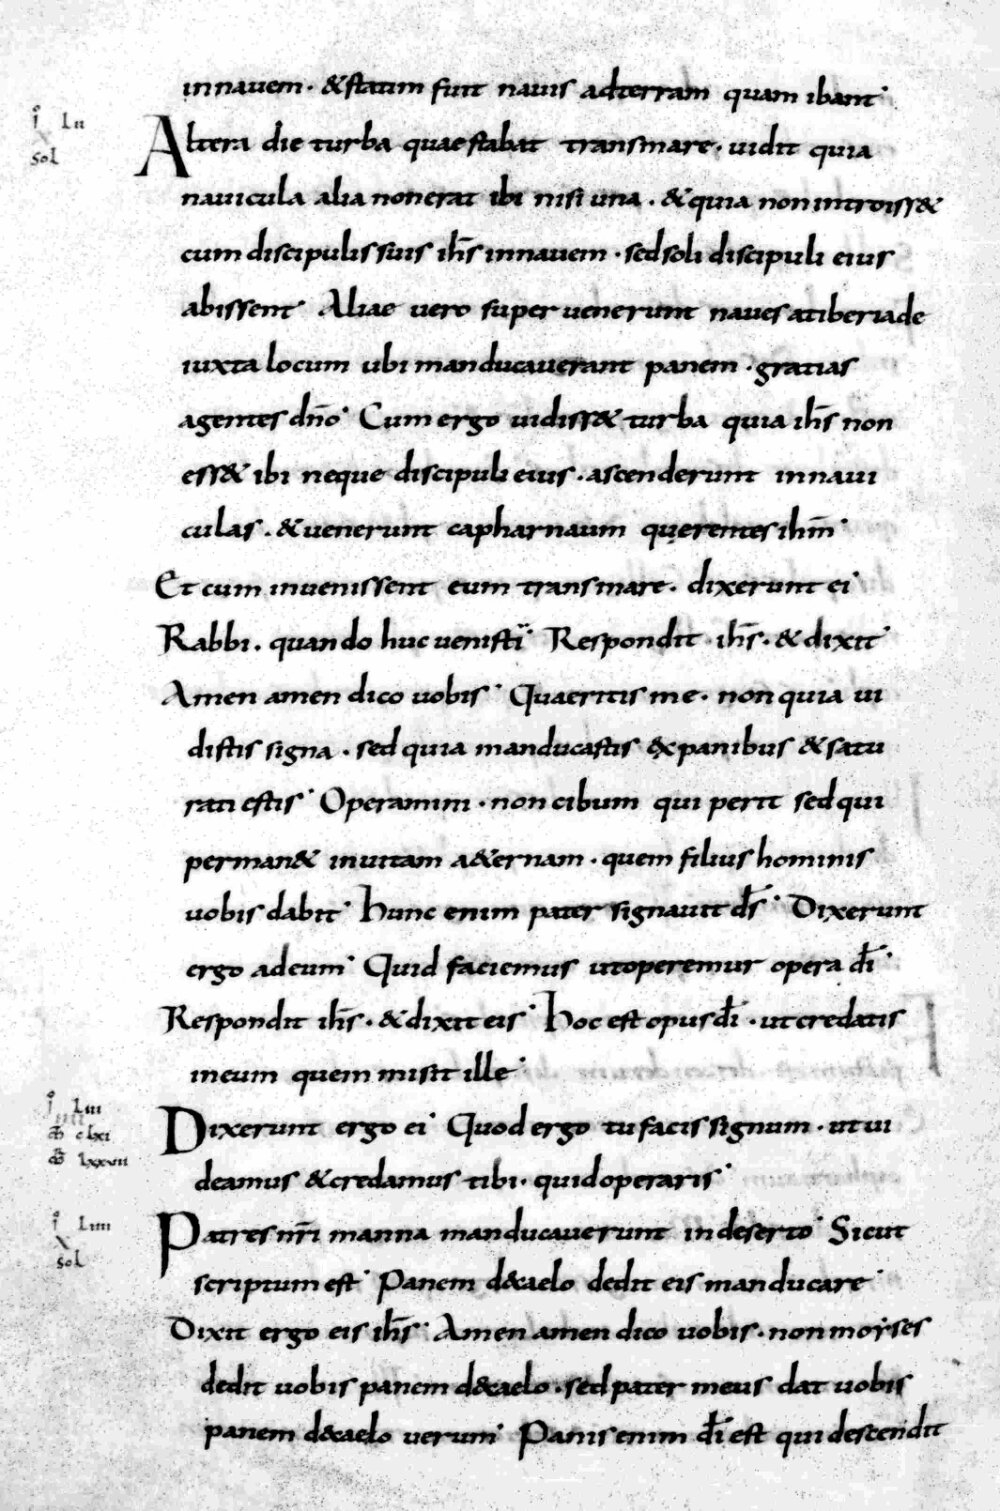 in navem · & statim fuit navis ad terram quam ibant·
i Lii
Altera die turba quae stabat trans mare · vidit quia
X
sol
navicula alia non erat ibi nisi una · & quia non introiss&
cum discipulis suis ihs in navem · sed soli discipuli eius
abissent· Aliae vero super venerunt naves a tiberiade
iuxta locum ubi manducaverant panem · gratias
agentes dno· Cum ergo vidiss& turba quia ihs non
ess& ibi neque discipuli eius · ascenderunt in navi
culas · & venerunt capharnaum querentes ihm·
Et cum invenissent eum trans mare · dixerunt ei·
Rabbi · quando huc venisti· Respondit ihs · & dixit·
Amen amen dico vobis· Quaeritis me · non quia vi
distis signa · sed quia manducastis ex panibus & satu
rati estis· Operamini · non cibum qui perit sed qui
perman& in vitam a&ernam · quem filius hominis
vobis dabit· hunc enim pater signavit ds· Dixerunt
ergo ad eum· Quid faciemus ut operemur opera di·
Respondit ihs · & dixit eis· hoc est opus di · ut credatis
in eum quem misit ille·
i Liii
Dixerunt ergo ei· Quod ergo tu facis signum · ut vi
clxi
lxxvii
deamus & credamus tibi · quid operaris·
i Liiii
Patres nri manna manducaverunt in deserto· Sicut
X
sol
scriptum est· Panem d&caelo dedit eis manducare·
Dixit ergo eis ihs· Amen amen dico vobis · non moyses
dedit vobis panem d&caelo · sed pater meus dat vobis
panem d&caelo verum· Panis enim di est qui descendit